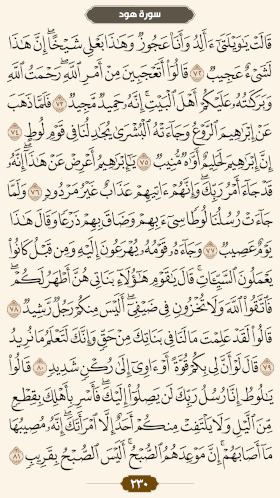 سورة هود
قَالَتْ يَٰوَيْلَتَىٰٓ ءَأَلِدُ وَأَنَا۠ عَجُوزٌ وَهَٰذَا بَعْلِى شَيْخًا ۖ إِنَّ هَٰذَا
لَشَىْءٌ عَجِيبٌ ٧٢ قَالُوٓا۟ أَتَعْجَبِينَ مِنْ أَمْرِ ٱللَّهِ ۖ رَحْمَتُ ٱللَّهِ
وَبَرَكَٰتُهُۥ عَلَيْكُمْ أَهْلَ ٱلْبَيْتِ ۚ إِنَّهُۥ حَمِيدٌ مَّجِيدٌ ٧٣ فَلَمَّا ذَهَبَ
عَنْ إِبْرَٰهِيمَ ٱلرَّوْعُ وَجَآءَتْهُ ٱلْبُشْرَىٰ يُجَٰدِلُنَا فِى قَوْمِ لُوطٍ ٧٤
إِنَّ إِبْرَٰهِيمَ لَحَلِيمٌ أَوَّٰهٌ مُّنِيبٌ ٧٥ يَٰٓإِبْرَٰهِيمُ أَعْرِضْ عَنْ هَٰذَآ ۖ إِنَّهُۥ
قَدْ جَآءَ أَمْرُ رَبِّكَ ۖ وَإِنَّهُمْ ءَاتِيهِمْ عَذَابٌ غَيْرُ مَرْدُودٍ ٧٦ وَلَمَّا
جَآءَتْ رُسُلُنَا لُوطًا سِىٓءَ بِهِمْ وَضَاقَ بِهِمْ ذَرْعًا وَقَالَ هَٰذَا
يَوْمٌ عَصِيبٌ ٧٧ وَجَآءَهُۥ قَوْمُهُۥ يُهْرَعُونَ إِلَيْهِ وَمِن قَبْلُ كَانُوا۟
يَعْمَلُونَ ٱلسَّيِّـَٔاتِ ۚ قَالَ يَٰقَوْمِ هَٰٓؤُلَآءِ بَنَاتِى هُنَّ أَطْهَرُ لَكُمْ ۖ
فَٱتَّقُوا۟ ٱللَّهَ وَلَا تُخْزُونِ فِى ضَيْفِىٓ ۖ أَلَيْسَ مِنكُمْ رَجُلٌ رَّشِيدٌ ٧٨
قَالُوا۟ لَقَدْ عَلِمْتَ مَا لَنَا فِى بَنَاتِكَ مِنْ حَقٍّ وَإِنَّكَ لَتَعْلَمُ مَا نُرِيدُ
٧٩ قَالَ لَوْ أَنَّ لِى بِكُمْ قُوَّةً أَوْ ءَاوِىٓ إِلَىٰ رُكْنٍ شَدِيدٍ ٨٠ قَالُوا۟
يَٰلُوطُ إِنَّا رُسُلُ رَبِّكَ لَن يَصِلُوٓا۟ إِلَيْكَ ۖ فَأَسْرِ بِأَهْلِكَ بِقِطْعٍ
مِّنَ ٱلَّيْلِ وَلَا يَلْتَفِتْ مِنكُمْ أَحَدٌ إِلَّا ٱمْرَأَتَكَ ۖ إِنَّهُۥ مُصِيبُهَا
مَآ أَصَابَهُمْ ۚ إِنَّ مَوْعِدَهُمُ ٱلصُّبْحُ ۚ أَلَيْسَ ٱلصُّبْحُ بِقَرِيبٍ ٨١
٢٣٠